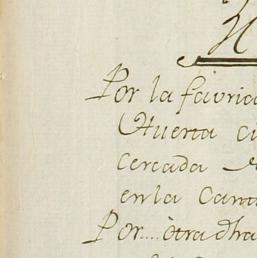 Por la favric
Huerta c
cercada
en la Can
Por.... òtra dha